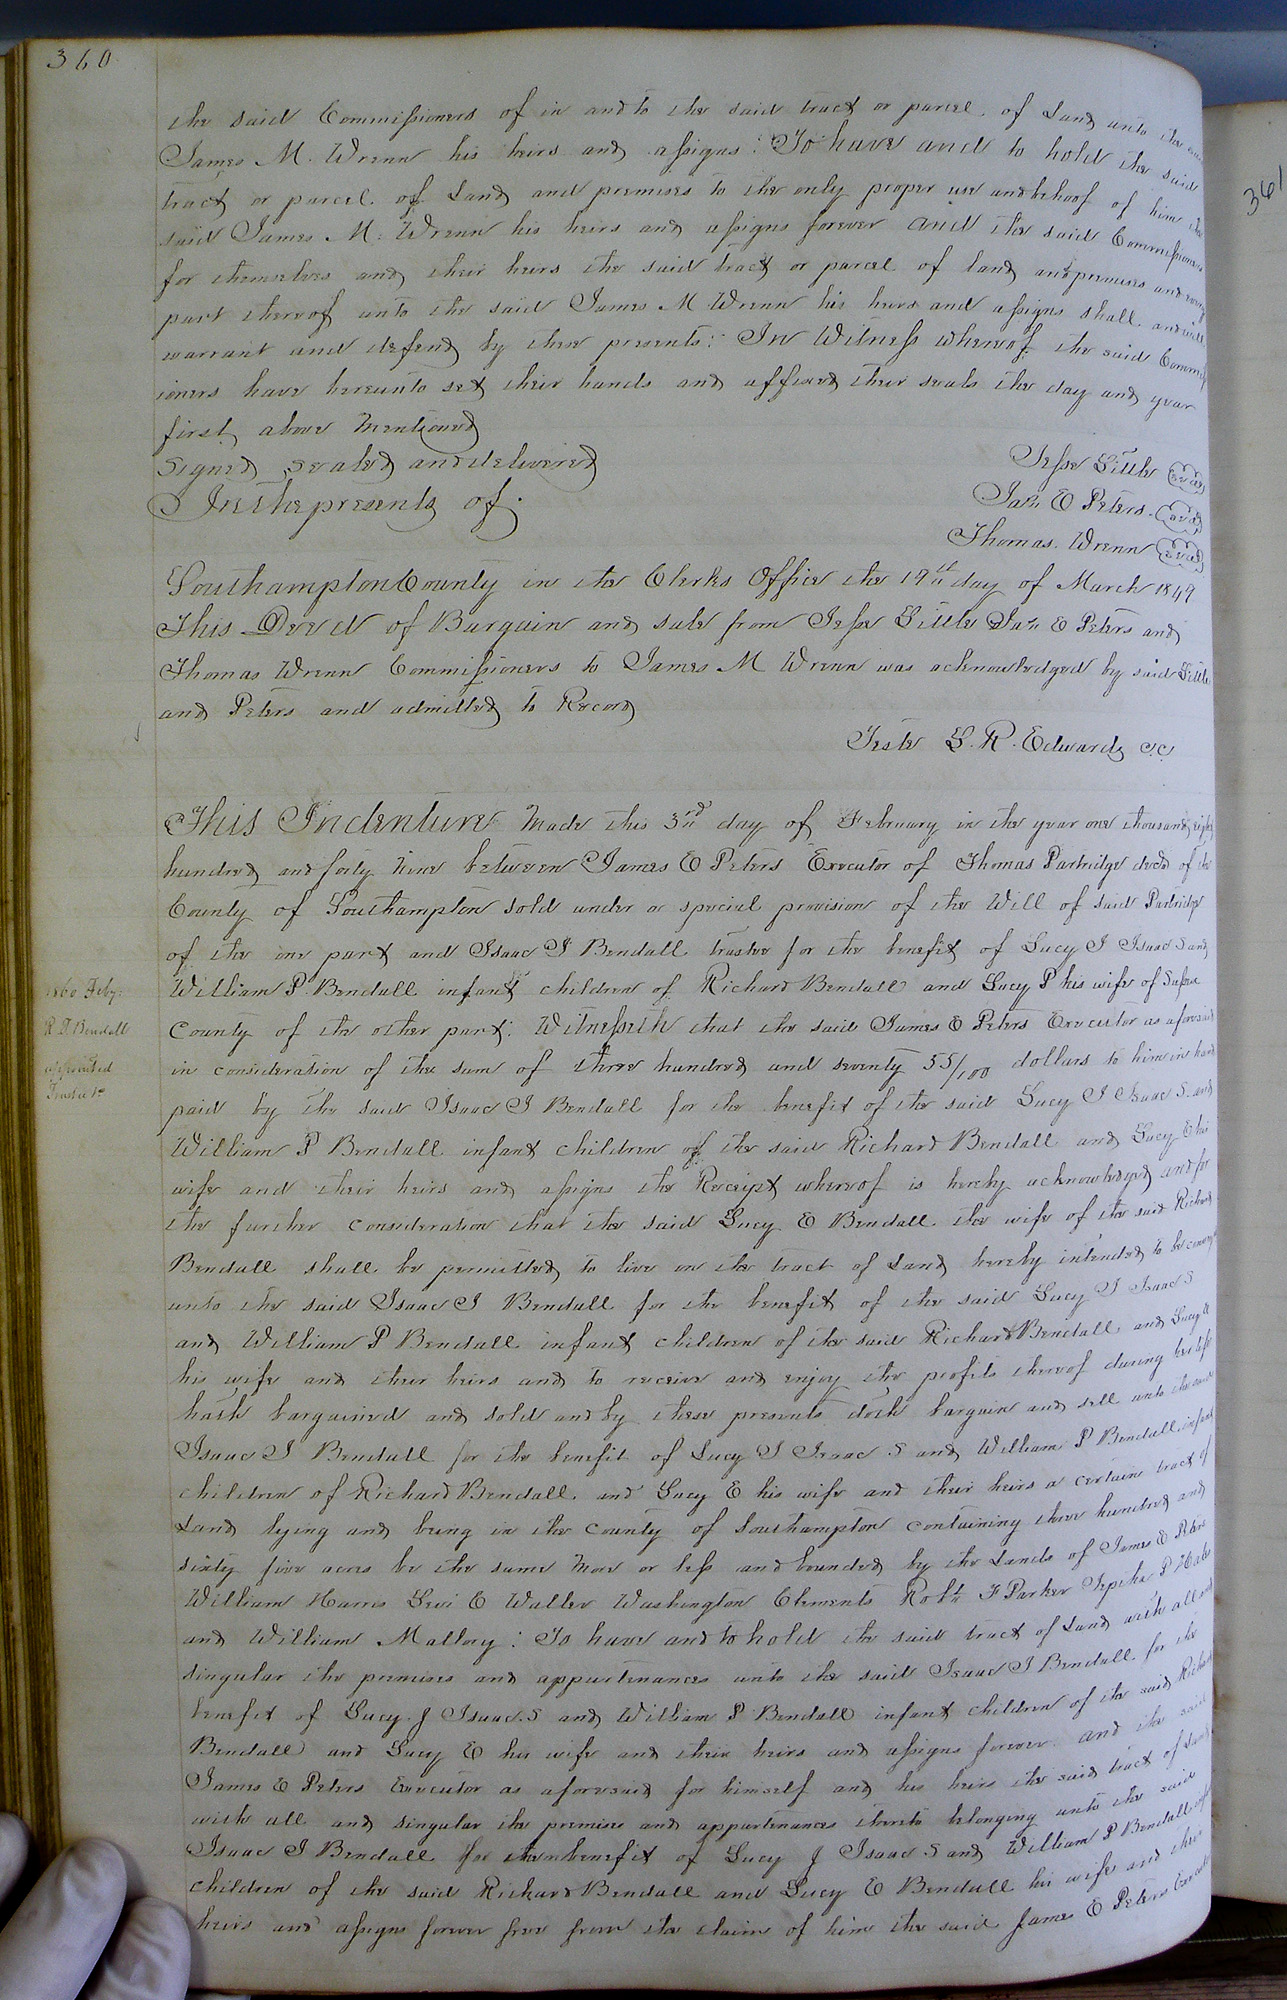 360
361
the said Commissioners of in and to the said tract or parcel of Land unto the said
James M. Wrenn his heirs and assigns: To have and to hold the said
tract or parcel of Land and premises to the only proper use and behoof of him the
said James M. Wrenn his heirs and assigns forever and the said Commissioners
for themselves and their heirs the said tract or parcel of land and premises and every
part thereof unto the said James M Wrenn his heirs and assigns shall and will
warrant and defend by these presents: In Witness whereof the said Commiss
ioners have hereunto set their hands and affixed their seals the day and year
first above Mentioned
Signed sealed and delivered
In the presents of.
Jesse Little seal
Jas. E Peters. seal
Thomas Wrenn seal
Southampton County in the Clerks Office the 19th day of March 1849
This Deed of Bargain and sale from Jesse Little Jas. E Peters and
Thomas Wrenn Commissioners to James M Wrenn was acknowledged by said Little
and Peters and admitted to Record
Teste L. R. Edwards CC
This Indenture Made this 3rd day of February in the year one thousand eight
hundred and forty nine between James E Peters Executor of Thomas Partridge decd of the
County of Southampton sold under a special provision of the Will of said Partridge
of the one part and Isaac J Bendall trustee for the benefit of Lucy J Isaac S and
William P. Bendall infant children of Richard Bendall and Lucy P his wife of Sussex
County of the other part: Witnesseth that the said James E Peters Executor as aforesaid
in consideration of the sum of three hundred and seventy 55/100 dollars to him in hand
paid by the said Isaac J Bendall for the benefit of the said Lucy J Isaac S. and
William P Bendall infant children of the said Richard Bendall and Lucy E his
wife and their heirs and assigns the Receipt whereof is hereby acknowledged and for
the further consideration that the said Lucy E Bendall the wife of the said Richard
Bendall shall be permitted to live on the tract of Land hereby intended to be convey
unto the said Isaac J Bendall for the benefit of the said Lucy J Isaac S
and William P Bendall infant children of the said Richard Bendall and Lucy E
his wife and their heirs and to receive and enjoy the profits thereof during her life
hath bargained and sold and by these presents doth bargain and sell unto the said
Isaac J Bendall for the benefit of Lucy J Isaac S and William P Bendall infant
children of Richard Bendall and Lucy E his wife and their heirs a certain tract of
Land lying and being in the County of Southampton containing three hundred and
sixty five acres be the same More or less and bounded by the Lands of James E Peters
William Harris Levi E Waller Washington Clements Robt. F Parker P Hale
and William Mallory: To have and to hold the said tract of Land with all and
singular the premises and appurtenances unto the said Isaac J Bendall for the
benefit of Lucy J Isaac. S and William P Bendall infant children of the said Richard
Bendall and Lucy E his wife and their heirs and assigns forever. and the said
James E Peters Executor as aforesaid for himself and his heirs the said tract of Land
with all and singular the premises and appurtenances thereto belonging unto the said
Isaac J Bendall for the benefit of Lucy J Isaac S and William P Bendall infant
children of the said Richard Bendall and Lucy E Bendall his wife and their
heirs and assigns forever free from the claim of him the said James E Peters
1860 Feby.
R. D. Bendall
appointed
Trustee